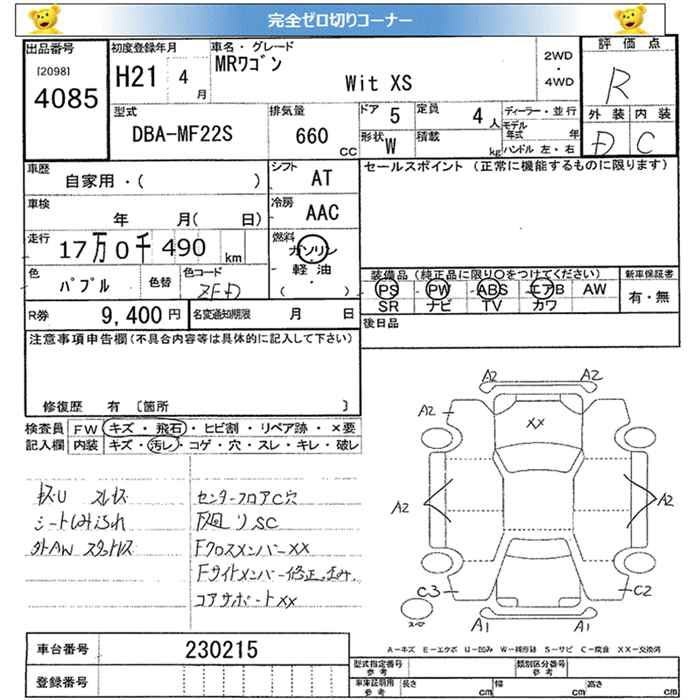 完全ゼロ切りコーナー
出品番号
[2098]
4085
初度登録年月
H21 4 月
車名・グレード
MRワゴン
Wit XS
2WD
・
4WD
評価点
R
外装 内装
D C
型式
DBA-MF22S
排気量
660 CC
ドア 5
定員 4 人
形状 W
積載 kg
ディーラー・並行
モデル年式 年
ハンドル 左・右
車歴
自家用・( )
シフト AT
車検
年 月( 日)
冷房 AAC
走行
17万0千490 km
燃料
ガソリン
軽油
( ・ )
色
パプル
色替
色コード
ZFD
R券 9,400円
名変通知期限 月 日
セールスポイント (正常に機能するものに限ります)
装備品(純正品に限り○をつけてください)
PS PW ABS エアB AW
SR ナビ TV カワ
新車保証書
有・無
後日品
注意事項申告欄(不具合内容等は具体的に記入して下さい)
修復歴 有 [箇所 ]
検査員 FW キズ・飛石・ヒビ割・リペア跡・×要
記入欄 内装 キズ・汚レ・コゲ・穴・スレ・キレ・破レ
シート
外AW スタットレス
センターフロアC穴
下廻りSC
FクロスメンバーXX
Fサイドメンバー修正
コアサポートXX
A2 A2
A2
XX
A2 A2
C3 C2
A1 A1
A-キズ E-エクボ U-凹み W-補修跡 S-サビ C-腐食 XX-交換済
車台番号 230215
登録番号
型式指定番号 参考
類別区分番号 参考
車庫証明用 参考 長さ cm 幅 cm 高さ cm